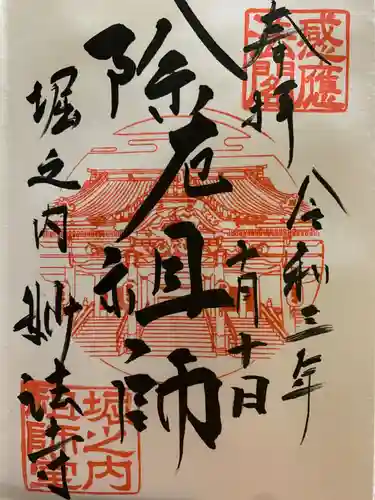 奉拝
令和三年
十月十日
除厄祖師
堀之内妙法寺
感應
堀之内
祖師堂